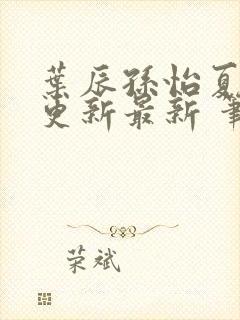 葉辰孫怡夏
更新最新 筆
荣斌